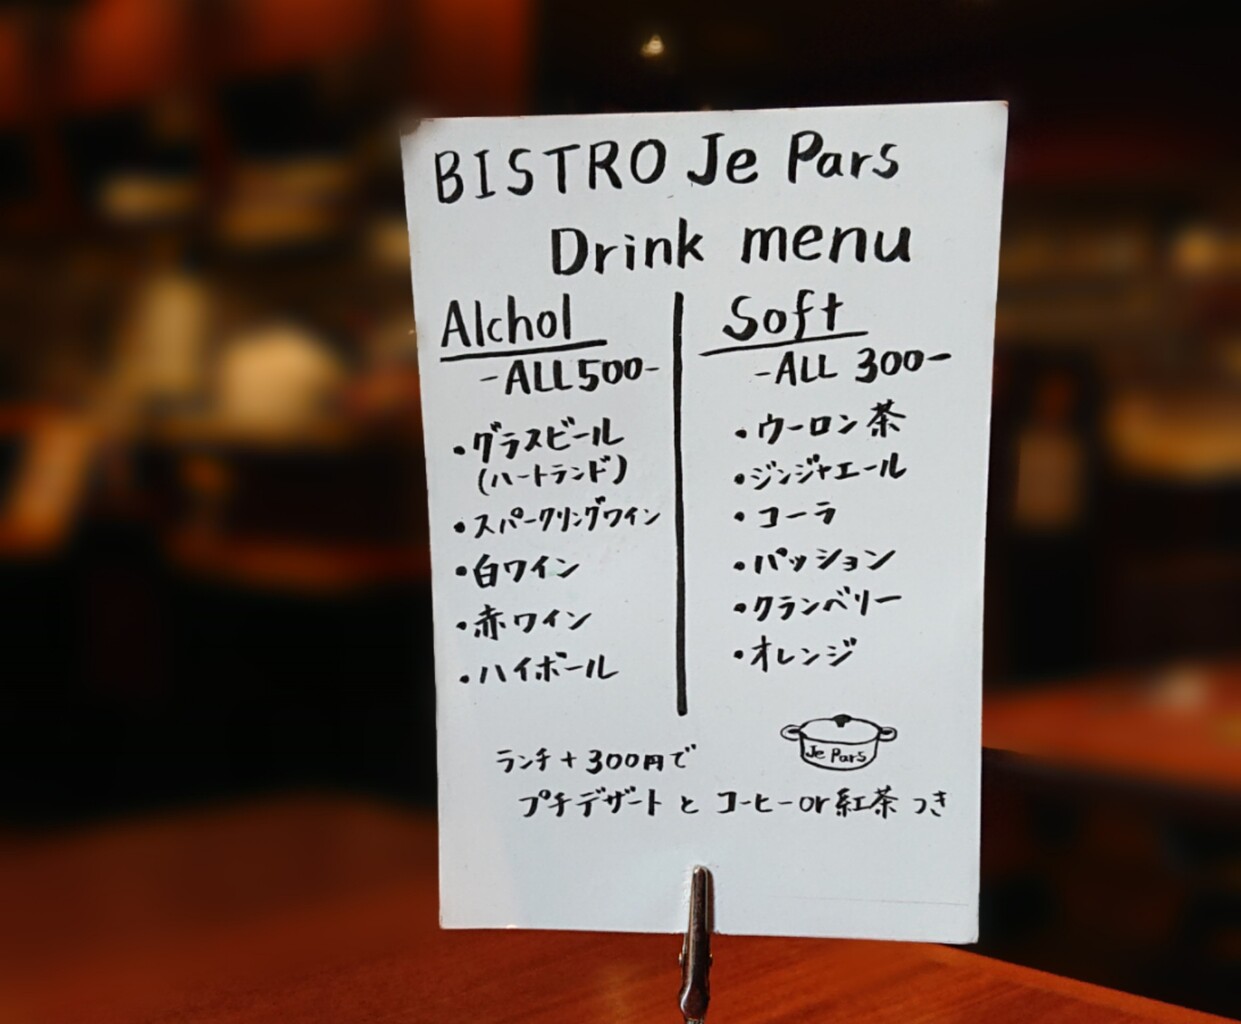 BISTRO Je Pars
Drink menu
Alchol
-ALL500-
・グラスビール
(ハートランド)
・スパークリングワイン
・白ワイン
・赤ワイン
・ハイボール
Soft
-ALL 300-
・ウーロン茶
・ジンジャエール
・コーラ
・パッション
・クランベリー
・オレンジ
Je Pars
ランチ+300円で
プチデザートとコーヒーor紅茶つき